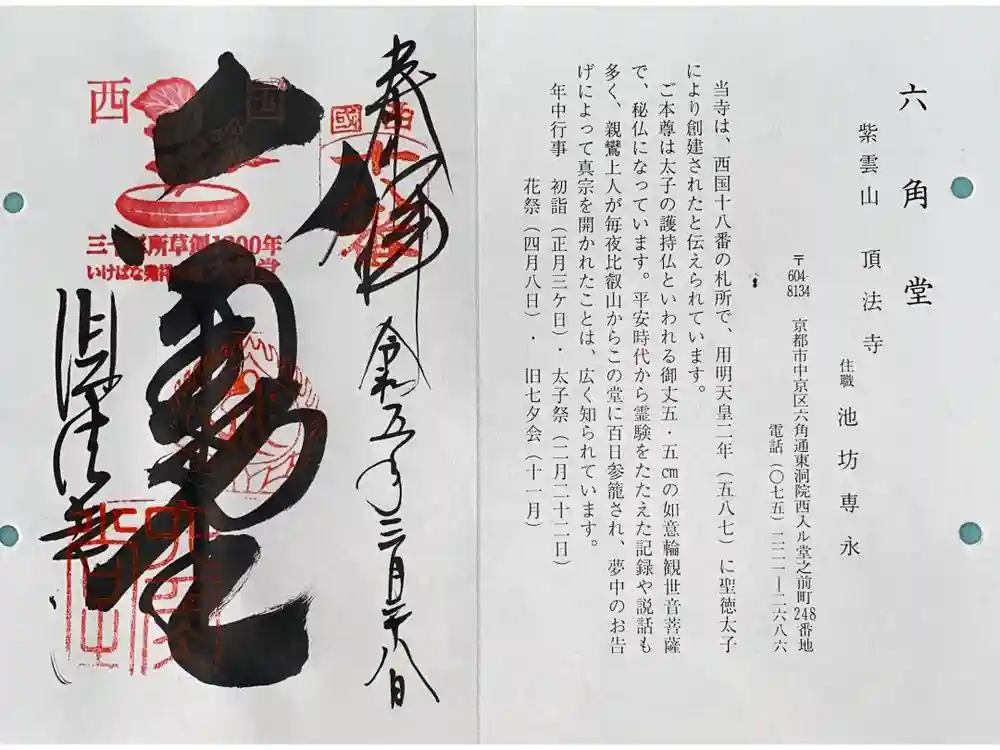 六角堂
紫雲山 頂法寺
住職 池坊専永
〒604-8134 京都市中京区六角通東洞院西入ル堂之前町248番地
電話(〇七五)二二一―二六八六
当寺は、西国十八番の札所で、用明天皇二年(五八七)に聖徳太子
により創建されたと伝えられています。
ご本尊は太子の護持仏といわれる御丈五・五㎝の如意輪観世音菩薩
で、秘仏になっています。平安時代から霊験をたたえた記録や説話も
多く、親鸞上人が毎夜比叡山からこの堂に百日参籠され、夢中のお告
げによって真宗を開かれたことは、広く知られています。
年中行事 初詣(正月三ケ日)・太子祭(二月二十二日)
花祭(四月八日)・ 旧七夕会(十一月)
奉拝
令和五年三月二十八日
西國
西国
三十三所草創1300年
いけばな発祥
頂法寺